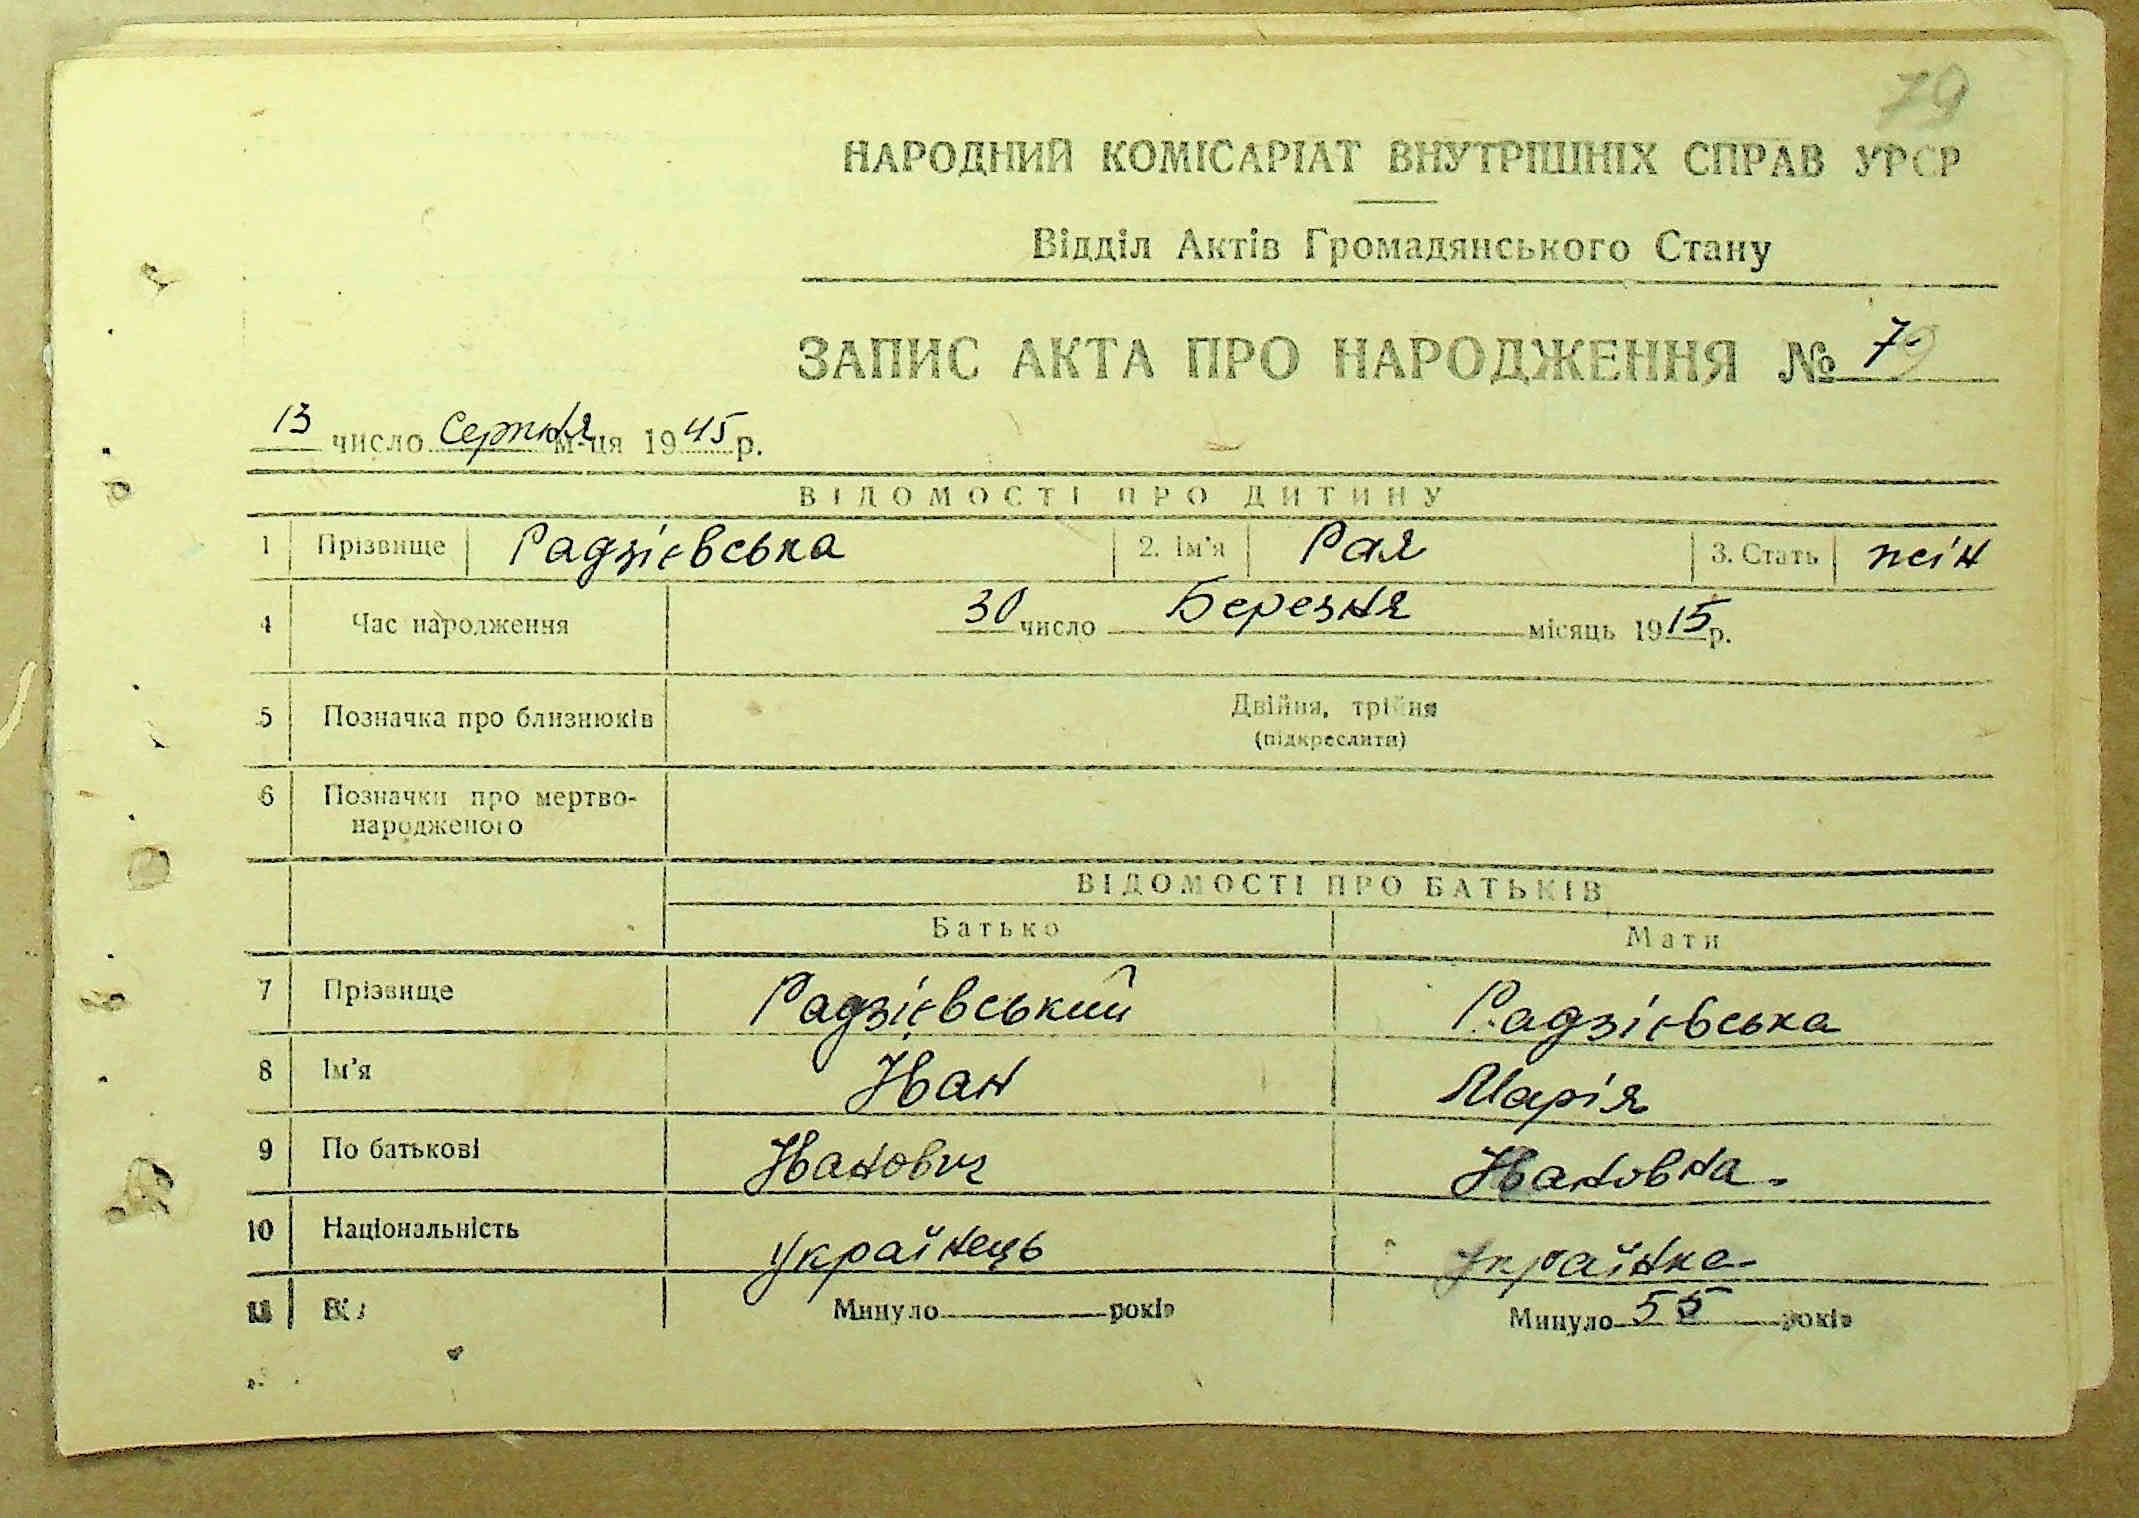 79
НАРОДНИЙ КОМІСАРІАТ ВНУТРІШНІХ СПРАВ УРСР
Відділ Актів Громадянського Стану
ЗАПИС АКТА ПРО НАРОДЖЕННЯ № 79
13 число Серпня м-ця 1945 р.
ВІДОМОСТІ ПРО ДИТИНУ
1 Прізвище Радзієвська 2. Ім'я Рая 3. Стать жін
4 Час народження 30 число Березня місяць 1915 р.
5 Позначка про близнюків Двійня, трійня
(підкреслити)
6 Позначки про мертво-
народженого
ВІДОМОСТІ ПРО БАТЬКІВ
Батько Мати
7 Прізвище Радзієвський Радзієвська
8 Ім'я Іван Марія
9 По батькові Іванович Івановна.
10 Національність Українець Українка
11 Вік Минуло років Минуло 55 років